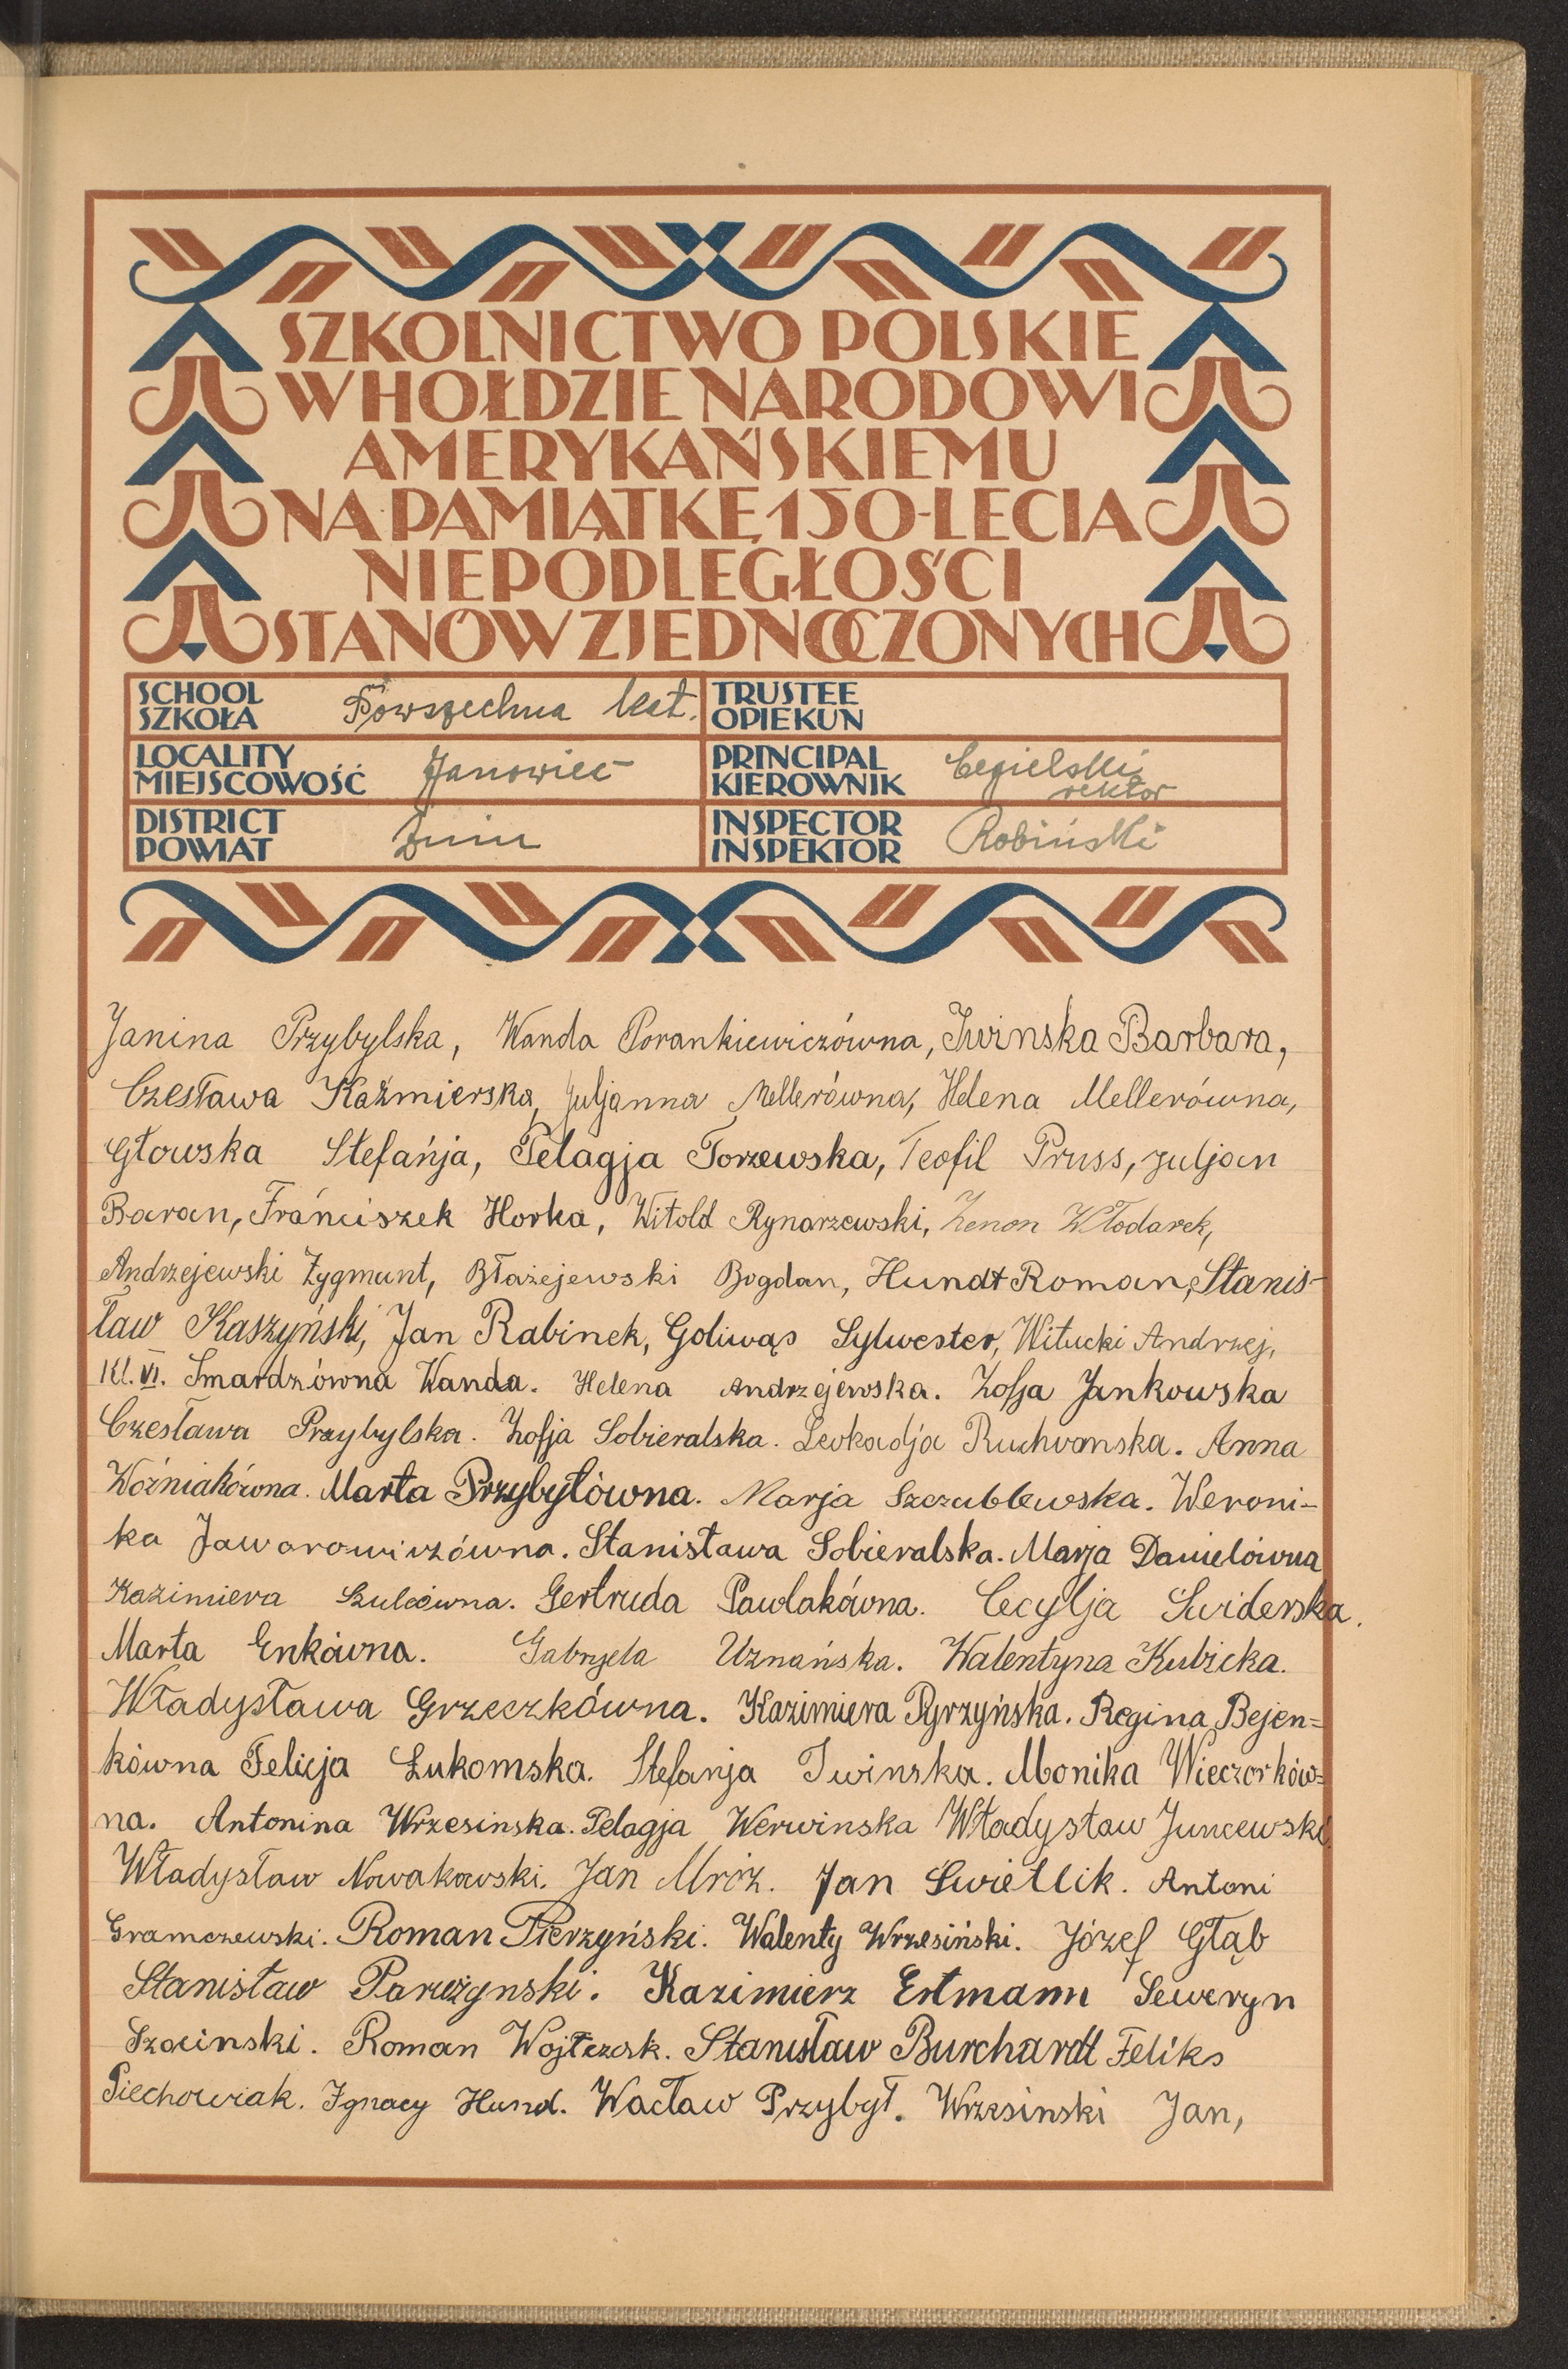 SZKOLNICTWO POLSKIE
W HOŁDZIE NARODOWI
AMERYKAŃSKIEMU
NA PAMIĄTKĘ 150-LECIA
NIEPODLEGŁOŚCI
STANÓW ZJEDNOCZONYCH
SCHOOL
SZKOŁA Powszechna kat.
TRUSTEE
OPIEKUN
LOCALITY
MIEJSCOWOŚĆ Janowiec
PRINCIPAL
KIEROWNIK Cegielski
rektor
DISTRICT
POWIAT Żnin
INSPECTOR
INSPEKTOR Robiński
Janina Przybylska, Wanda Porankiewiczówna, Iwinska Barbara,
Czesława Kaźmierska, Juljanna Mellerówna, Helena Mellerówna,
Głowska Stefańja, Pelagja Torzewska, Teofil Pruss, Juljan
Baran, Franciszek Horka, Witold Rynarzewski, Zenon Włodarek,
Andrzejewski Zygmunt, Błażejewski Bogdan, Hundt Roman, Stanis-
ław Kaszyński, Jan Rabinek, Goliwąs Sylwester, Witucki Andrzej,
Kl. VI. Smardzówna Wanda. Helena Andrzejewska. Zofja Jankowska
Czesława Przybylska. Zofja Sobieralska. Leokadja Ruchvanska. Anna
Woźniakówna. Marta Przybyłówna. Marja Szczublewska. Weroni-
ka Jaworowiczówna. Stanisława Sobieralska. Marja Danielówna
Kazimiera Szulcówna. Gertruda Pawlakówna. Cecylja Świderska.
Marta Enkówna. Gabryela Uznańska. Walentyna Kubicka.
Władysława Grzeczkówna. Kazimiera Pyrzyńska. Regina Bejen=
kówna Felicja Łukomska. Stefanja Iwinska. Monika Wieczorków=
na. Antonina Wrzesinska. Pelagja Werwinska Władysław Juncewski
Władysław Nowakowski. Jan Mróz. Jan Świetlik. Antoni
Gramczewski. Roman Pierzyński. Walenty Wrzesiński. Józef Głąb
Stanisław Parzynski. Kazimierz Ertmann Seweryn
Szocinski. Roman Wojtczak. Stanisław Burchardt Feliks
Piechowiak. Ignacy Hund. Wacław Przybył. Wrzesinski Jan,